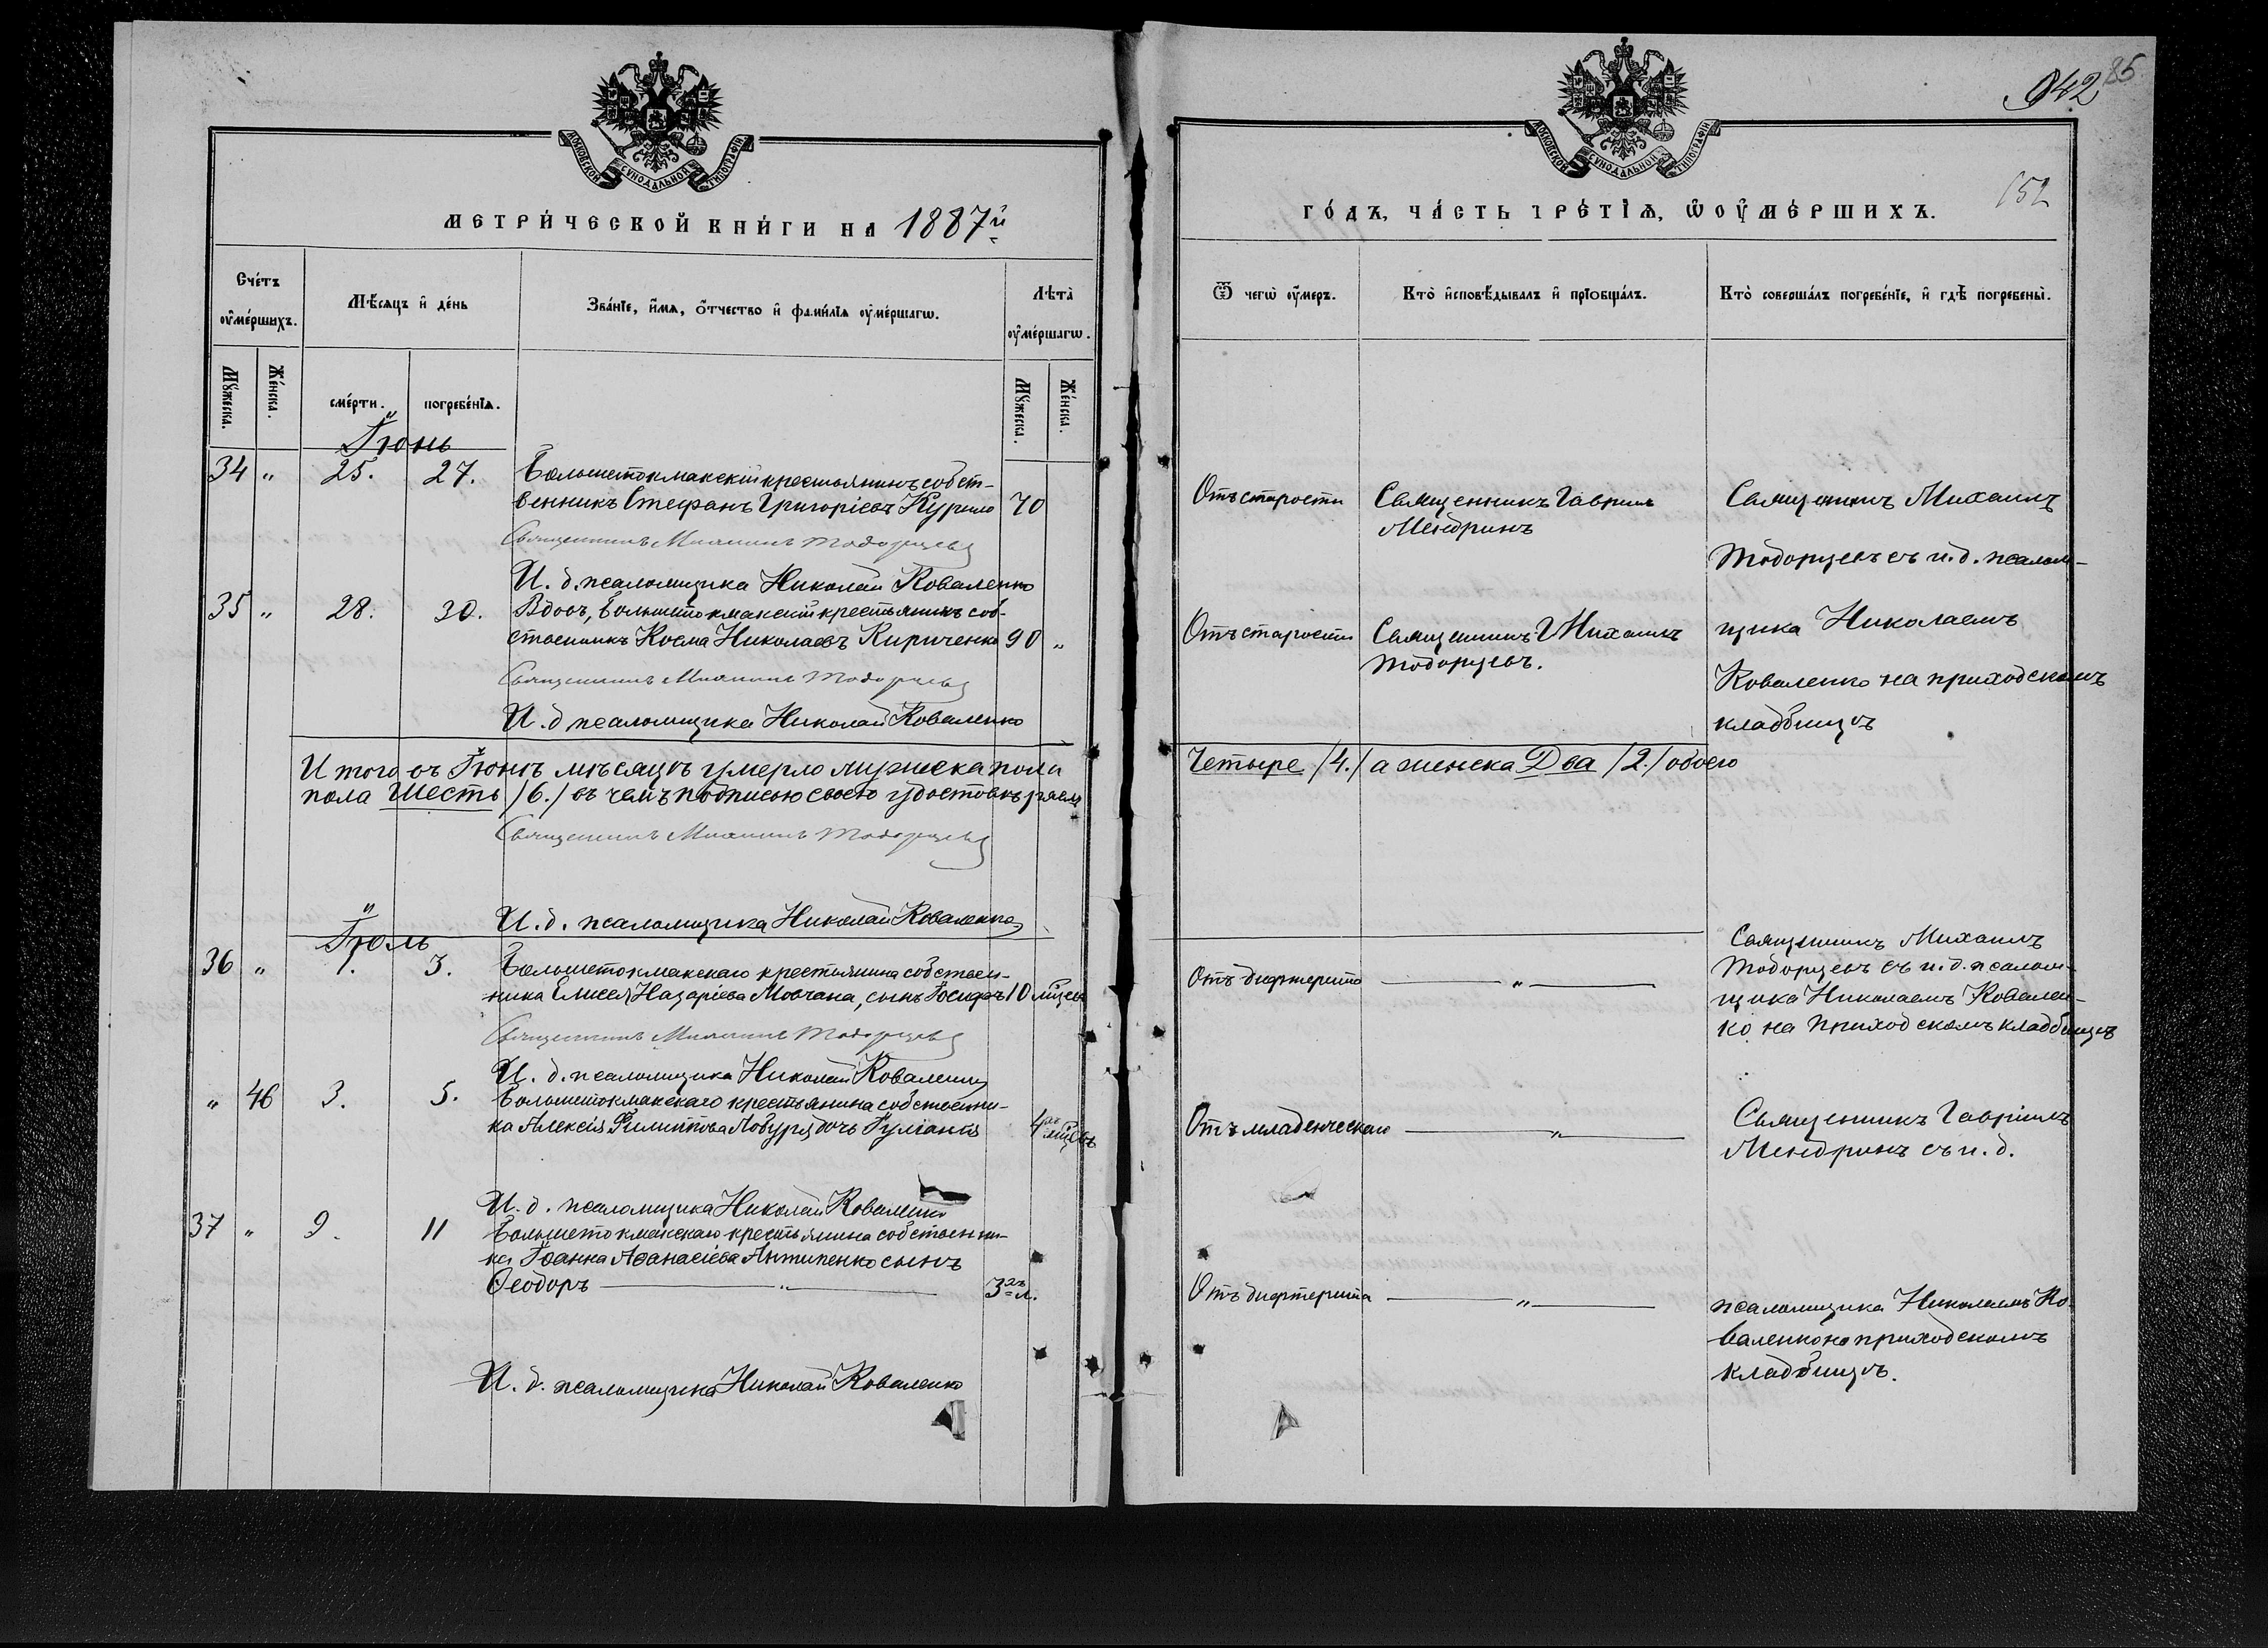 МОСКОВСКОЙ СѴНОДАЛЬНОЙ ТИПОГРАФІИ
МЕТРИ́ЧЕСКОЙ КНИ́ГИ НА 1887й
Сче́тъ ᲂу҆ме́ршихъ.
Мѣ́сяцъ и҆ де́нь
Зва́нїе, и҆́мѧ, ѻ҆́тчество и҆ фами́лїѧ ᲂу҆ме́ршагѡ.
Лѣта̀ ᲂу҆ме́ршагѡ.
Мꙋ́жеска.
Же́нска.
сме́рти.
погребе́нїѧ.
Мꙋ́жеска.
Же́нска.
Іюнь
34 " 25. 27. Большетокмакскій крестьянинъ собст-
венникъ Стефанъ Григоріевъ Курило 70
Священникъ Михаилъ Тодорцевъ
И. д. псаломщика Николай Коваленко
35 " 28. 30. Вдовъ, большетокмакскій крестьянинъ соб-
ственникъ Косма Николаевъ Кириченко 90 "
Священникъ Михаилъ Тодорцевъ
И. д псаломщика Николай Коваленко
И того въ Іюнѣ мѣсяцѣ умерло мужеска пола
пола Шесть /6./ въ чемъ подписью своею удостовѣряемъ
Священникъ Михаилъ Тодорцевъ
И. д. псаломщика Николай Коваленко
Іюль
36 " 1. 3. Большетокмакскаго крестьянина собствен-
ника Елисея Назаріева Мовчана, сынъ Іосифъ 10 мѣсец
Священникъ Михаилъ Тодорцевъ
И. д. псаломщика Николай Коваленко
" 46 3. 5. Большетокмакскаго крестьянина собственни-
ка Алексія Филиппова дочь Іуліанія 4
И. д. псаломщика Николай Коваленко
37 " 9. 11 Большетокмакскаго крестьянина собственни-
ка Іоанна Аѳанасіева Антипенко сынъ
Ѳеодоръ " 3хъ л.
И. д. псаломщика Николай Коваленко
942
85
152
МОСКОВСКОЙ СѴНОДАЛЬНОЙ ТИПОГРАФІИ
ГО́ДЪ, ЧА́СТЬ ТРЕ́ТЇѦ, Ѡ ОУ҆МЕ́РШИХЪ.
Ѿ чегѡ̀ ᲂу҆́меръ.
Кто̀ и҆сповѣ́дывалъ и҆ прїѡбща́лъ.
Кто̀ соверша́лъ погребе́нїе, и҆ гдѣ̀ погребены̀.
Отъ старости
Священникъ Гавріилъ
Мендринъ
Священникъ Михаилъ
Тодорцевъ съ и. д. псалом-
Отъ старости
Священникъ Михаилъ
Тодорцевъ.
щика Николаемъ
Коваленко на приходскомъ
кладбищѣ
Четыре /4./ а женска Два /2./ обоего
Отъ дифтерита "
Священникъ Михаилъ
Тодорцевъ съ и. д. псалом-
щика Николаемъ Ковален-
ко на приходскомъ кладбищѣ
Отъ младенческаго "
Священникъ Гавріилъ
Мендринъ съ и. д.
Отъ дифтерита "
псаломщика Николаемъ Ко-
валенко на приходскомъ
кладбищѣ.